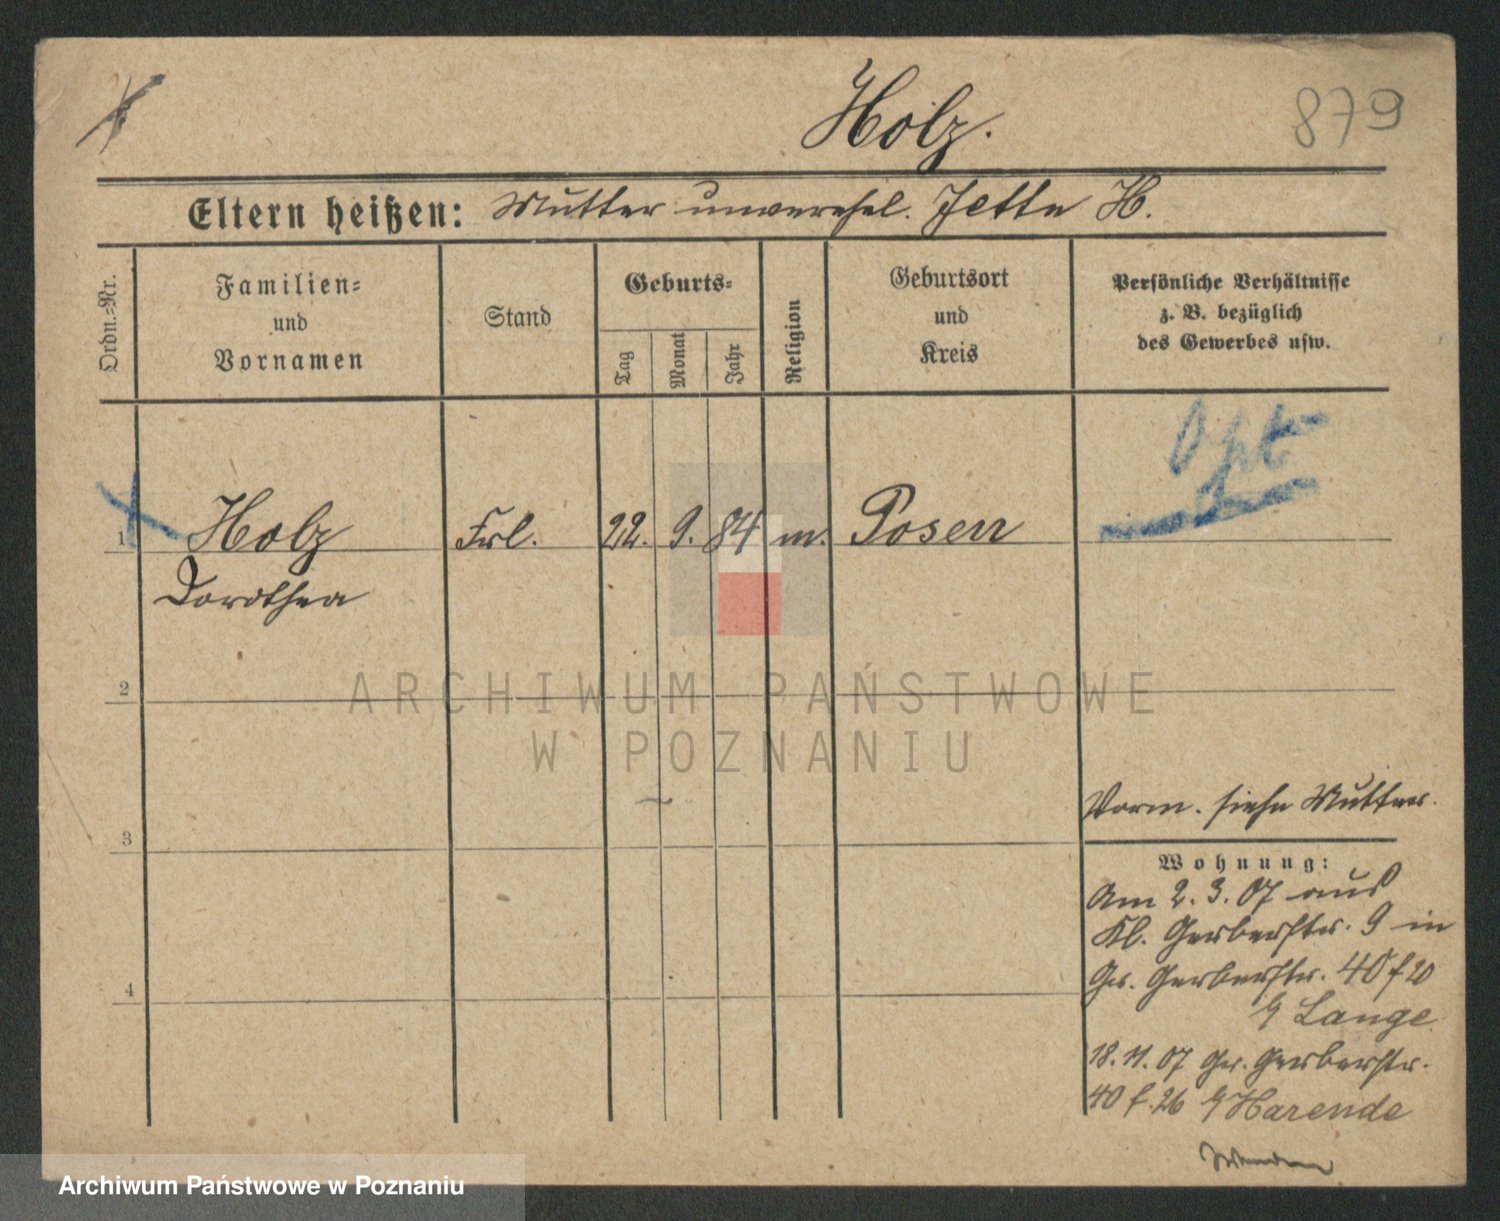 Holz.
879
Eltern heißen: Mutter unverehel. Jette H.
Ordn.-Nr.
Familien-
und
Vornamen
Stand
Geburts-
Tag
Monat
Jahr
Religion
Geburtsort
und
Kreis
Persönliche Verhältnisse
z. B. bezüglich
des Gewerbes usw.
Opt
1 Holz Frl. 22. 9. 84 m. Posen
Dorothea
2
ARCHIWUM PAŃSTWOWE
W POZNANIU
Vorm. siehe Mutter.
3
Wohnung:
Am 2. 3. 07 aus
Kl. Gerberstr. 9 in
Gr. Gerberstr. 40 f 20
Lange
4
18. 11. 07 Gr. Gerberstr.
40 f. 26 Harende
Wenden
Archiwum Państwowe w Poznaniu